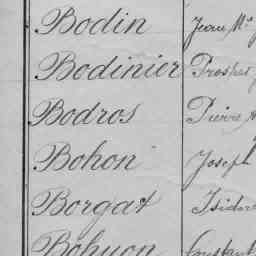 Bodin Jean M.
Bodinier Prosper
Bodros Pierre
Bohon Joseph
Borgat Isidore
Bohuon Constant